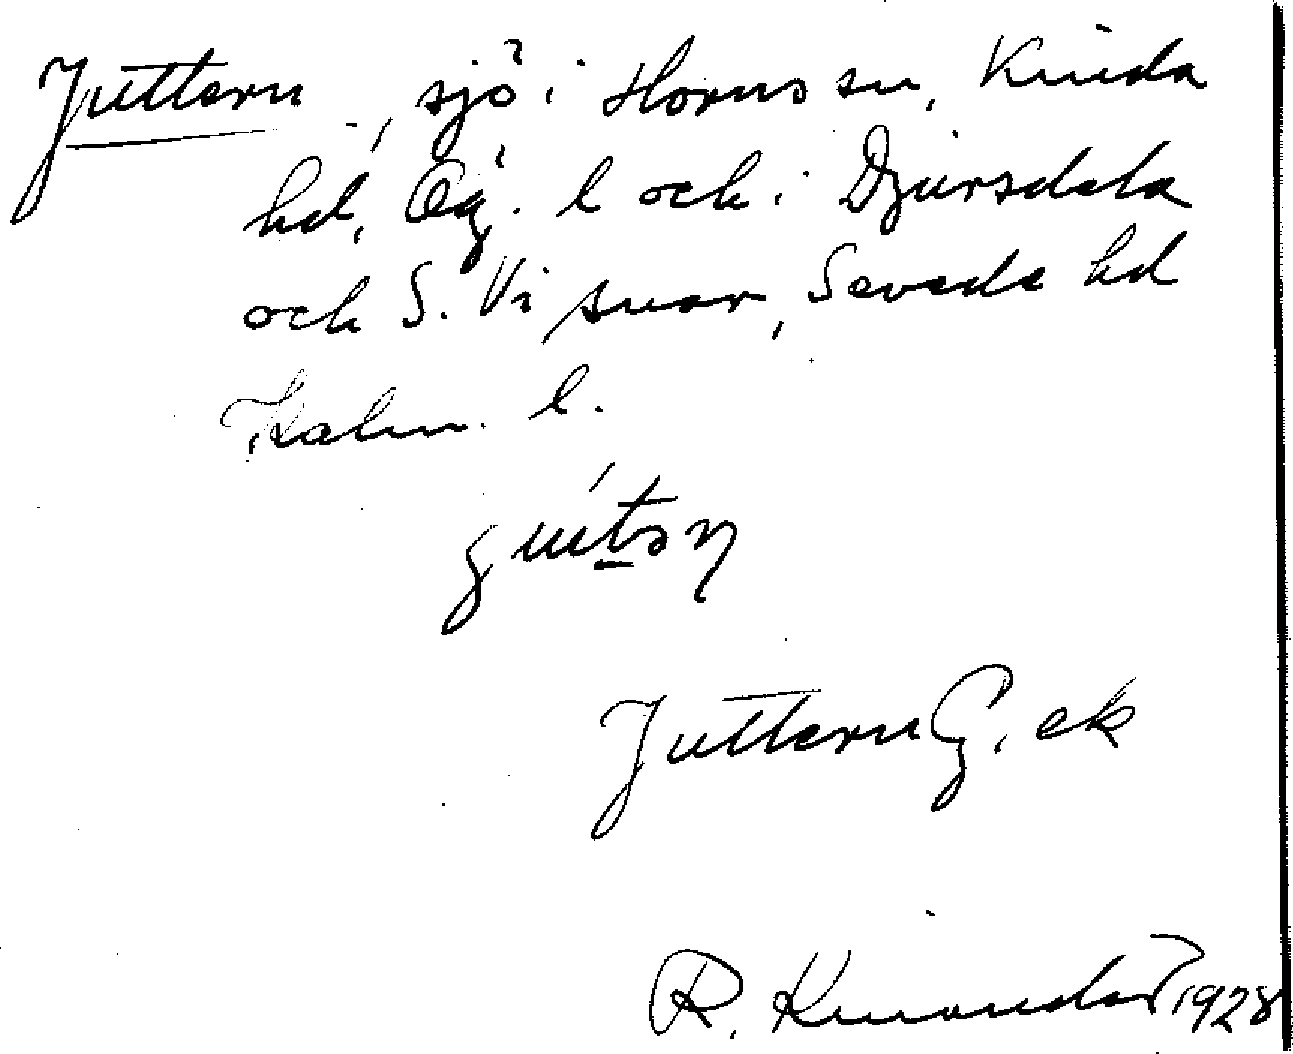 Juttern, sjö i Horns sn, Kinda
hd, Ög. l och i Djursdala
och S. Vi snar, Sevede hd
Kalm. l.
Juttern G. ek
R. 1928